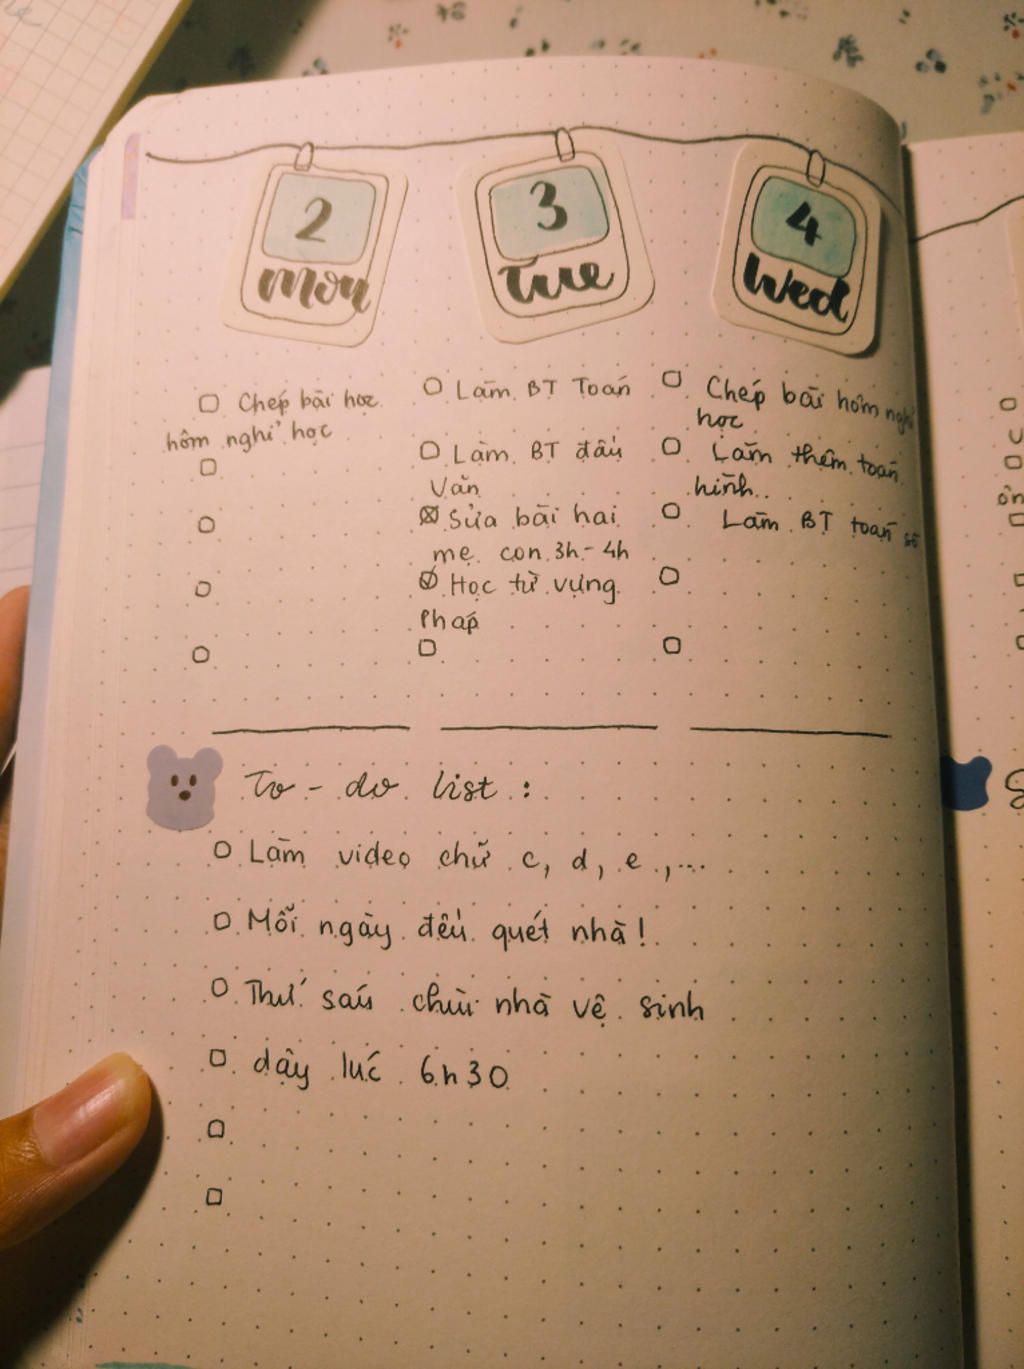 2
mon
3
Tue
4
Wed
Chép bài học
hôm nghỉ học
Làm BT Toán
Làm BT đầu
Văn
Sửa bài hai
mẹ con 3h - 4h
Học từ vựng
Pháp
Chép bài hôm nghỉ
học
Làm thêm toán
hình
Làm BT toán số
To - do list :
Làm video chữ c, d, e ,...
Mỗi ngày đều quét nhà!
Thứ sáu chùi nhà vệ sinh
dậy lúc 6h30